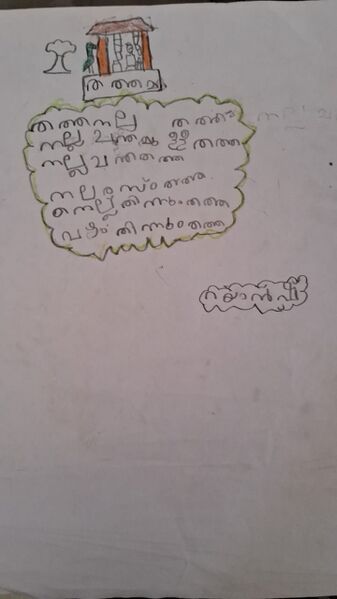 തത്തമ്മ
തത്തനല്ല തത്ത
നല്ല ചന്തമുള്ള തത്ത
നല്ല ചന്തതത്ത
നല്ല രസം തത്ത
നെല്ല് തിന്നും തത്ത
പഴം തിന്നും തത്ത